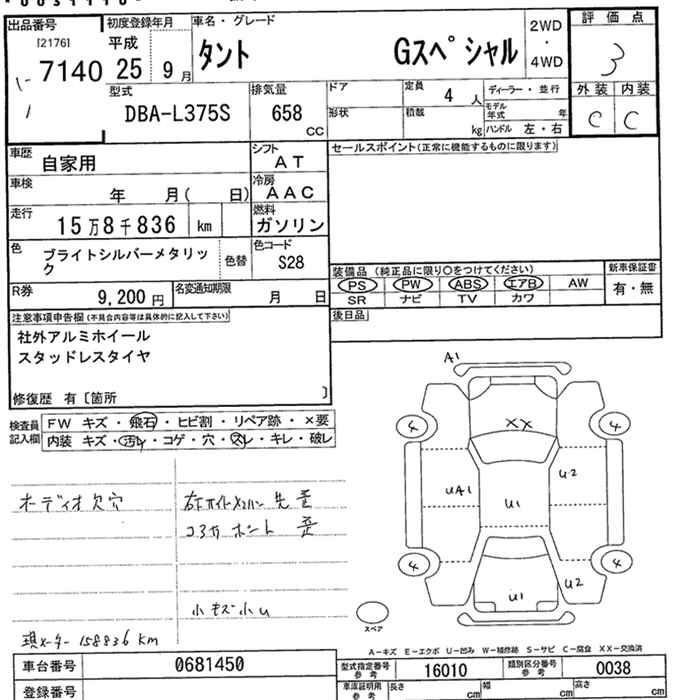 出品番号 初度登録年月 車名・グレード 2WD ・ 4WD 評価点
[2176] 平成
7140 25 9月 タント Gスペシャル 3
型式 排気量 ドア 定員 4人 ディーラー・並行 外装 内装
DBA-L375S 658 CC 形状 積載 kg モデル年式 年 C C
ハンドル 左・右
車歴 自家用 シフト AT セールスポイント(正常に機能するものに限ります)
車検 年 月( 日) 冷房 AAC
走行 15万8千836 km 燃料 ガソリン
色 ブライトシルバーメタリック 色替 色コード S28
装備品 (純正品に限り○をつけてください) 新車保証書
PS PW ABS エアB AW 有・無
SR ナビ TV カワ
R券 9,200円 名変通知期限 月 日
後日品
注意事項申告欄(不具合内容等は具体的に記入して下さい)
社外アルミホイール
スタッドレスタイヤ
修復歴 有〔箇所 〕
検査員記入欄 FW キズ・飛石・ヒビ割・リペア跡・×要
内装 キズ・汚レ・コゲ・穴・スレ・キレ・破レ
A1
4 XX 4
UA1 U2
U1
4 4
U2
U1
スペア
オーディオ欠穴
小キズ小U
現メーター158836km
A-キズ E-エクボ U-凹み W-補修跡 S-サビ C-腐食 XX-交換済
車台番号 0681450 型式指定番号 参考 16010 類別区分番号 参考 0038
登録番号 車庫証明用 参考 長さ cm 幅 cm 高さ cm